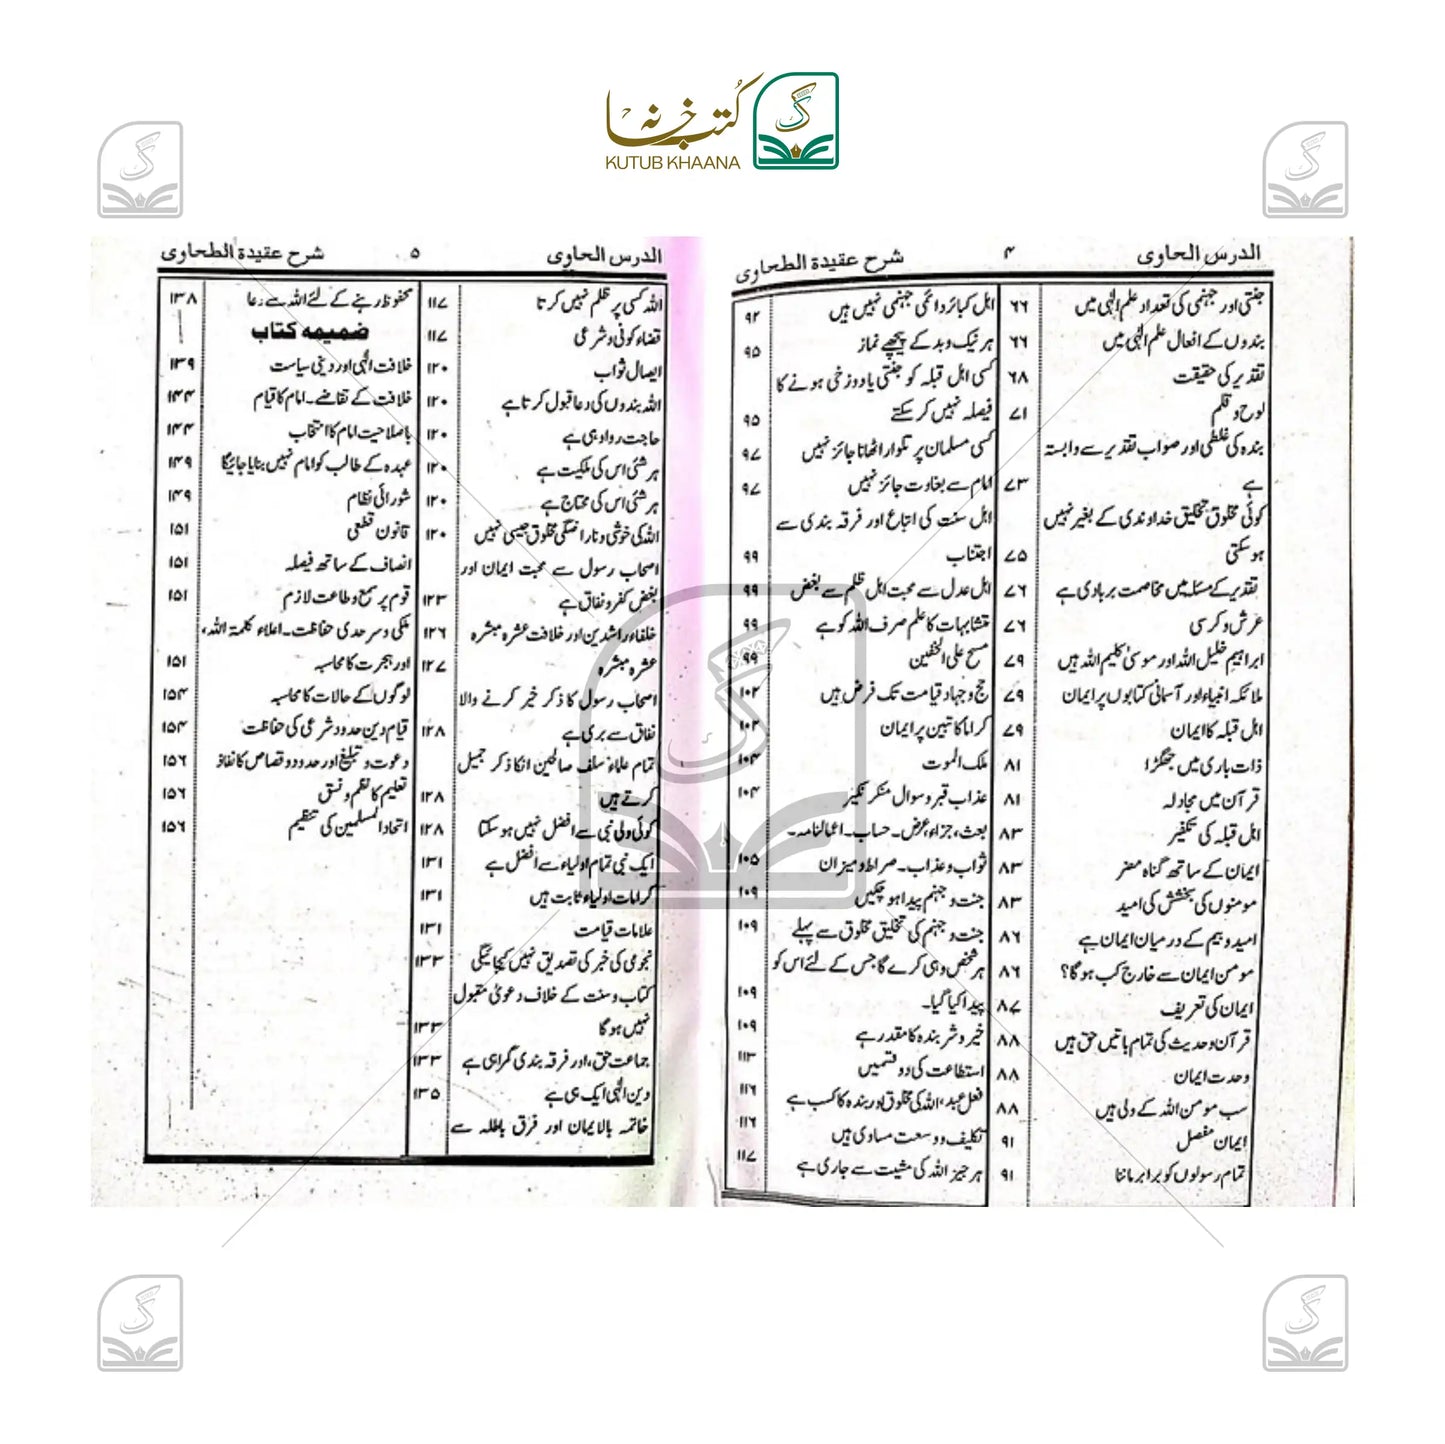 کتب خانہ
KUTUB KHAANA
الدرس الحاوی ۴ شرح عقیدۃ الطحاوی
جنتی اور جہنمی کی تعداد علم الٰہی میں ۶۶
بندوں کے افعال علم الٰہی میں ۶۶
تقدیر کی حقیقت ۶۸
لوح و قلم ۷۱
بندہ کی غلطی اور صواب تقدیر سے وابستہ
ہے ۷۳
کوئی مخلوق تخلیق خداوندی کے بغیر نہیں
ہو سکتی ۷۵
تقدیر کے مسئلہ میں مخاصمت بربادی ہے ۷۶
عرش و کرسی ۷۶
ابراہیم خلیل اللہ اور موسیٰ کلیم اللہ ہیں ۷۹
ملائکہ انبیاء اور آسمانی کتابوں پر ایمان ۷۹
اہل قبلہ کا ایمان ۷۹
ذات باری میں جھگڑا ۸۱
قرآن میں مجادلہ ۸۱
اہل قبلہ کی تکفیر ۸۳
ایمان کے ساتھ گناہ مضر ۸۳
مومنوں کی بخشش کی امید ۸۳
امید و بیم کے درمیان ایمان ہے ۸۶
مومن ایمان سے خارج کب ہوگا؟ ۸۶
ایمان کی تعریف ۸۷
قرآن و حدیث کی تمام باتیں حق ہیں ۸۸
وحدت ایمان ۸۸
سب مومن اللہ کے ولی ہیں ۸۸
ایمان مفصل ۹۱
تمام رسولوں کو برابر ماننا ۹۱
اہل کبائر دائمی جہنمی نہیں ہیں ۹۲
ہر نیک و بد کے پیچھے نماز ۹۵
کسی اہل قبلہ کو جنتی یا دوزخی ہونے کا
فیصلہ نہیں کر سکتے ۹۵
کسی مسلمان پر تلوار اٹھانا جائز نہیں ۹۷
امام سے بغاوت جائز نہیں ۹۷
اہل سنت کی اتباع اور فرقہ بندی سے
اجتناب ۹۹
اہل عدل سے محبت اہل ظلم سے بغض ۹۹
متشابہات کا علم صرف اللہ کو ہے ۹۹
مسح علی الخفین ۹۹
حج و جہاد قیامت تک فرض ہیں ۱۰۲
کراماً کاتبین پر ایمان ۱۰۲
ملک الموت ۱۰۴
عذاب قبر و سوال منکر نکیر ۱۰۴
بعث، جزاء، عرض۔ حساب۔ اعمالنامہ۔
ثواب و عذاب۔ صراط و میزان ۱۰۵
جنت و جہنم پیدا ہو چکیں ۱۰۹
جنت و جہنم کی تخلیق مخلوق سے پہلے ۱۰۹
ہر شخص وہی کرے گا جس کے لئے اس کو
پیدا کیا گیا۔ ۱۰۹
خیر و شر بندہ کا مقدر ہے ۱۰۹
استطاعت کی دو قسمیں ۱۱۳
فعل عبد، اللہ کی مخلوق اور بندہ کا کسب ہے ۱۱۶
تکلیف و وسعت مساوی ہیں ۱۱۶
ہر چیز اللہ کی مشیت سے جاری ہے ۱۱۷
الدرس الحاوی ۵ شرح عقیدۃ الطحاوی
اللہ کسی پر ظلم نہیں کرتا ۱۱۷
قضاء کونی و شرعی ۱۱۷
ایصال ثواب ۱۲۰
اللہ بندوں کی دعا قبول کرتا ہے ۱۲۰
حاجت روا وہی ہے ۱۲۰
ہر شئی اس کی ملکیت ہے ۱۲۰
ہر شئی اس کی محتاج ہے ۱۲۰
اللہ کی خوشی و ناراضگی مخلوق جیسی نہیں ۱۲۰
اصحاب رسول سے محبت ایمان اور
بغض کفر و نفاق ہے ۱۲۳
خلفاء راشدین اور خلافت عشرہ مبشرہ ۱۲۶
عشرہ مبشرہ ۱۲۷
اصحاب رسول کا ذکر خیر کرنے والا
نفاق سے بری ہے ۱۲۸
تمام علماء سلف صالحین انکا ذکر جمیل
کرتے ہیں ۱۲۸
کوئی ولی نبی سے افضل نہیں ہو سکتا ۱۲۸
ایک نبی تمام اولیاء سے افضل ہے ۱۳۱
کرامات اولیاء ثابت ہیں ۱۳۱
علامات قیامت ۱۳۱
نجومی کی خبر کی تصدیق نہیں کیجائیگی ۱۳۳
کتاب و سنت کے خلاف دعویٰ مقبول
نہیں ہوگا ۱۳۳
جماعت حق، اور فرقہ بندی گمراہی ہے ۱۳۳
دین الٰہی ایک ہی ہے ۱۳۵
خاتمہ بالایمان اور فرق باطلہ سے
محفوظ رہنے کے لئے اللہ سے دعا ۱۳۸
ضمیمہ کتاب
خلافت الٰہی اور دینی سیاست ۱۳۹
خلافت کے تقاضے۔ امام کا قیام ۱۴۴
باصلاحیت امام کا انتخاب ۱۴۴
عہدہ کے طالب کو امام نہیں بنایا جائیگا ۱۴۹
شورائی نظام ۱۴۹
قانون قطعی ۱۵۱
انصاف کے ساتھ فیصلہ ۱۵۱
قوم پر سمع و طاعت لازم ۱۵۱
ملکی و سرحدی حفاظت۔ اعلاء کلمۃ اللہ،
اور ہجرت کا محاسبہ ۱۵۱
لوگوں کے حالات کا محاسبہ ۱۵۴
قیام دین حدود شرعی کی حفاظت ۱۵۴
دعوت و تبلیغ اور حدود و قصاص کا نفاذ ۱۵۶
تعلیم کا نظم و نسق ۱۵۶
اتحاد المسلمین کی تنظیم ۱۵۶